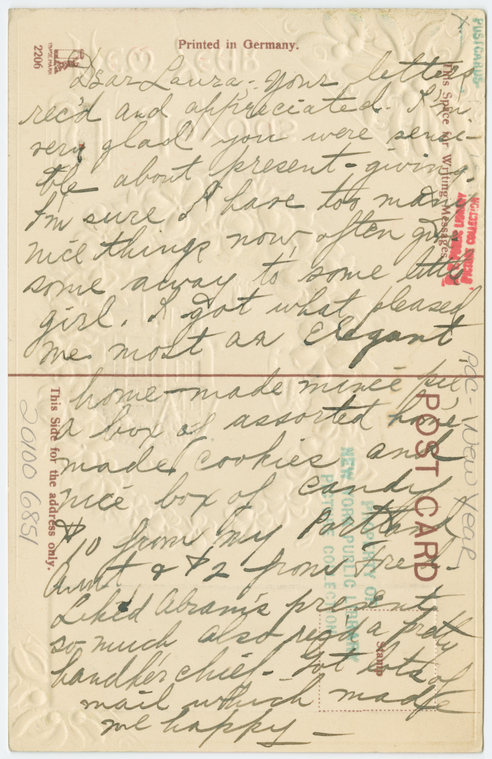 Printed in Germany.
2206
POSTCARDS
This Space for Writing Messages
Dear Laura, - your letters
rec'd and appreciated. I'm
very glad you were sensi-
ble about present-giving.
I'm sure I have too many
nice things now, often give
some away to some little
girl. I got what pleased
me most an Elegant
home-made mince pie,
a box of assorted home-
made cookies, and
nice box of candy
$10 from my Portland
Aunt & $2 from Fred.
Liked Abram's present
so much also rec'd a pretty
handkerchief - Got lots of
mail which made
me happy -
This Side for the address only.
POST CARD
Stamp
PROPERTY OF
NEW YORK PUBLIC LIBRARY
PICTURE COLLECTION
New Year
20100 6851